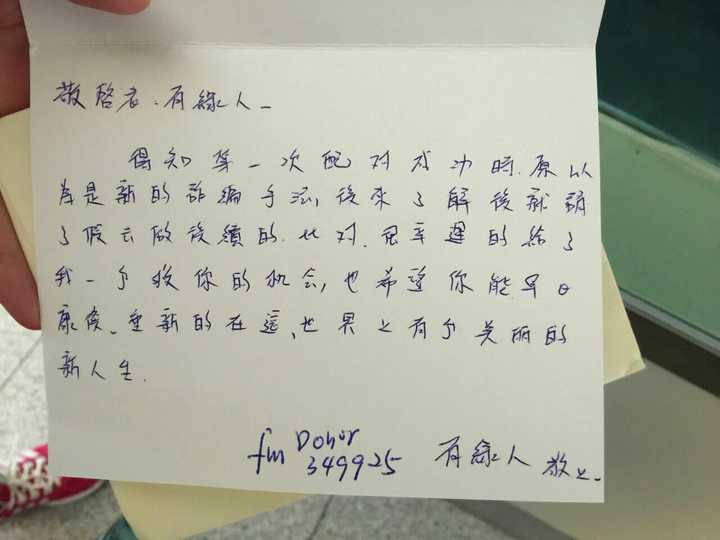 敬啓者、有緣人-
得知第一次配對成功時,原以
為是新的詐騙手法,後來了解後就請
了假去做後續的比对,很幸運的給了
我一个救你的机会,也希望你能早日
康復、重新的在這、世界上有个美丽的
新人生.
fm Donor
349925
有緣人 敬上-